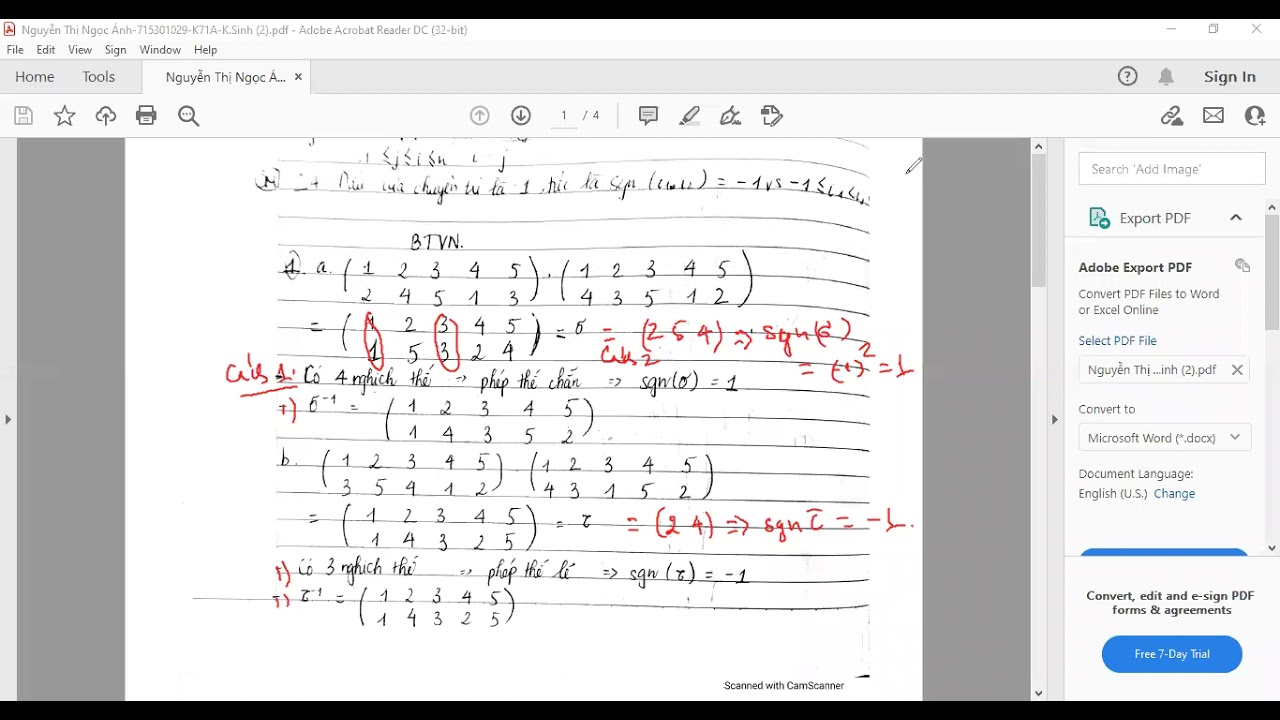 Nguyễn Thị Ngọc Ánh-715301029-K71A-K.Sinh (2).pdf - Adobe Acrobat Reader DC (32-bit)
File Edit View Sign Window Help
Home Tools Nguyễn Thị Ngọc Á... × Sign In
1 / 4
1 ≤ j ≤ i ≤ n i - j
chuyển trí là 1, tức là sgn
BTVN.
1. a. ( 1 2 3 4 5 ) . ( 1 2 3 4 5 )
2 4 5 1 3 4 3 5 1 2
= ( 1 2 3 4 5 ) = σ = (2 5 4) => sgn(σ)
1 5 3 2 4 Cách 2 = (-1)² = 1
Cách 1: Có 4 nghịch thế → phép thế chẵn => sgn(σ) = 1
+) σ⁻¹ = ( 1 2 3 4 5 )
1 4 3 5 2
b. ( 1 2 3 4 5 ) . ( 1 2 3 4 5 )
3 5 4 1 2 4 3 1 5 2
= ( 1 2 3 4 5 ) = τ = (2 4) => sgn τ = -1.
1 4 3 2 5
+) Có 3 nghịch thế → phép thế lẻ => sgn(τ) = -1
+) τ⁻¹ = ( 1 2 3 4 5 )
1 4 3 2 5
Scanned with CamScanner
Search 'Add Image'
Export PDF
Adobe Export PDF
Convert PDF Files to Word
or Excel Online
Select PDF File
Nguyễn Thị ...inh (2).pdf ×
Convert to
Microsoft Word (*.docx)
Document Language:
English (U.S.) Change
Convert, edit and e-sign PDF
forms & agreements
Free 7-Day Trial